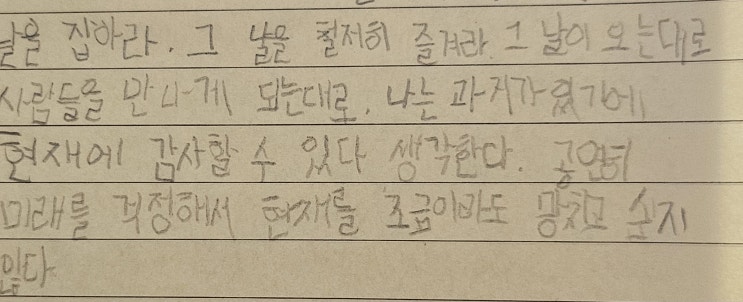 날을 잡아라. 그 날을 철저히 즐겨라. 그 날이 오는대로
사람들을 만나게 되는대로. 나는 과거가 있기에
현재에 감사할 수 있다 생각한다. 공연히
미래를 걱정해서 현재를 조금이라도 망치고 싶지
않다